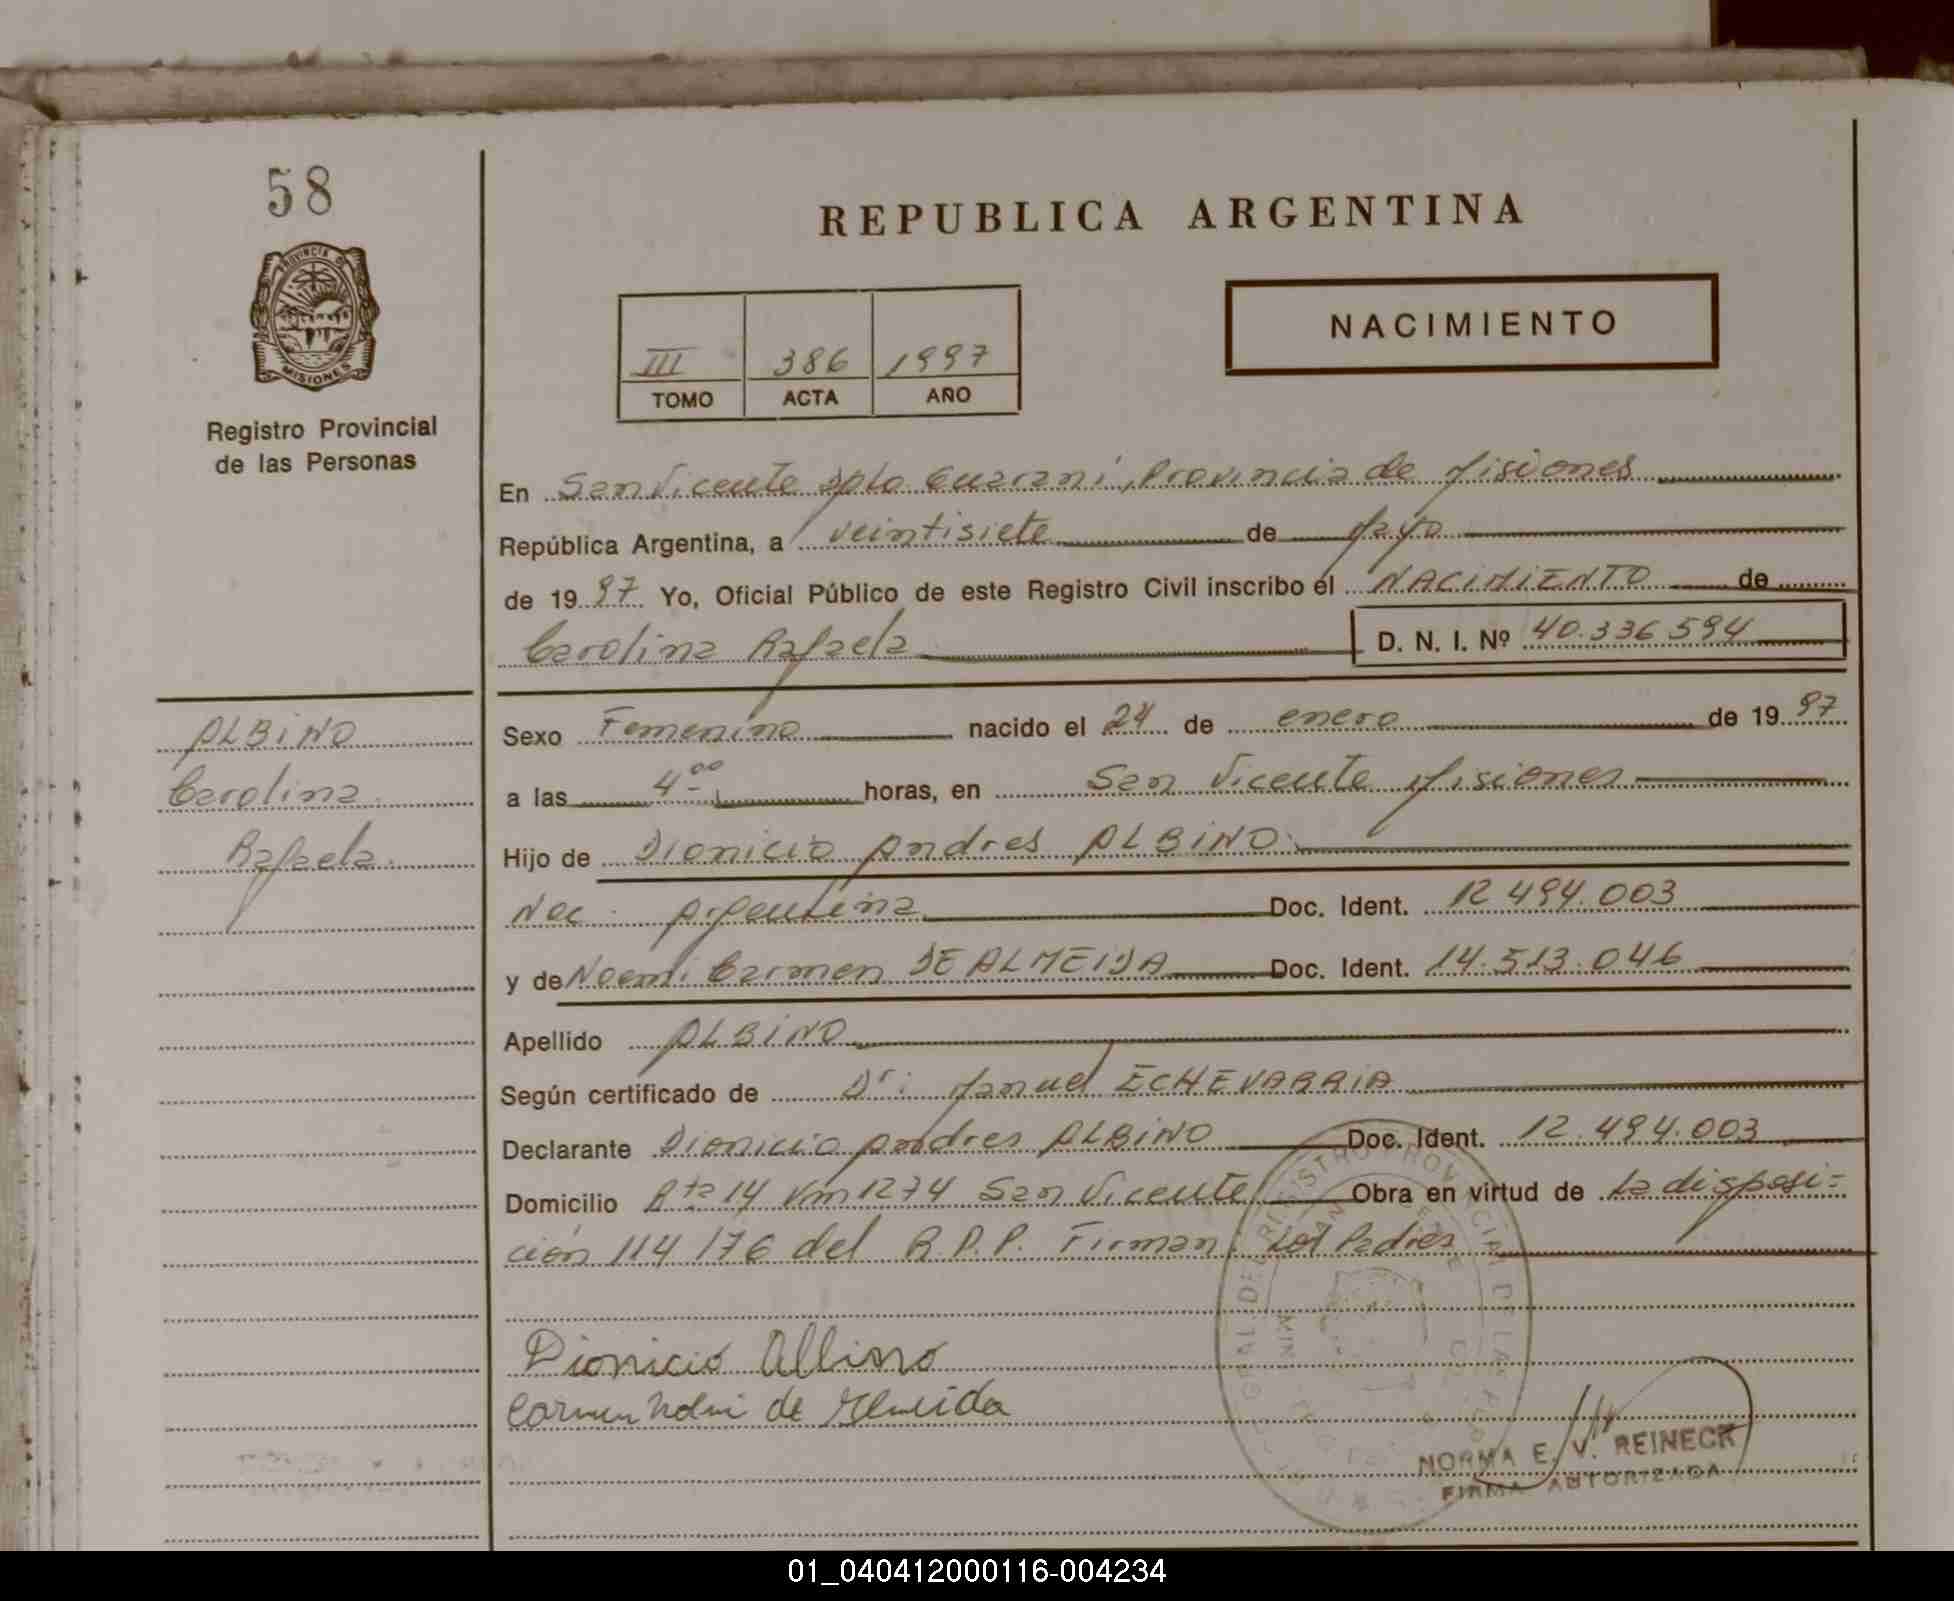 58
PROVINCIA DE
MISIONES
Registro Provincial
de las Personas
REPUBLICA ARGENTINA
NACIMIENTO
III 386 1997
TOMO ACTA AÑO
En San Vicente Dpto Guaraní, Provincia de Misiones
República Argentina, a veintisiete de Mayo
de 1997 Yo, Oficial Público de este Registro Civil inscribo el NACIMIENTO de
Carolina Rafaela D. N. I. Nº 40.336.594
ALBINO
Carolina
Rafaela
Sexo Femenino nacido el 24 de enero de 1997
a las 4⁰⁰ horas, en San Vicente Misiones
Hijo de Dionicio Andres ALBINO
Nac. Argentina Doc. Ident. 12.494.003
y de Noemi Carmen DE ALMEIDA Doc. Ident. 14.513.046
Apellido ALBINO
Según certificado de Dr: Manuel ECHEVARRIA
Declarante Dionicio Andres ALBINO Doc. Ident. 12.494.003
Domicilio Rta 14 Km 1274 San Vicente Obra en virtud de La disposi-
ción 114/76 del R.P.P. Firman: Los Padres
Dionicio Albino
Carmen Noemi de Almeida
NORMA E. V. REINECK
FIRMA AUTORIZADA
01_040412000116-004234